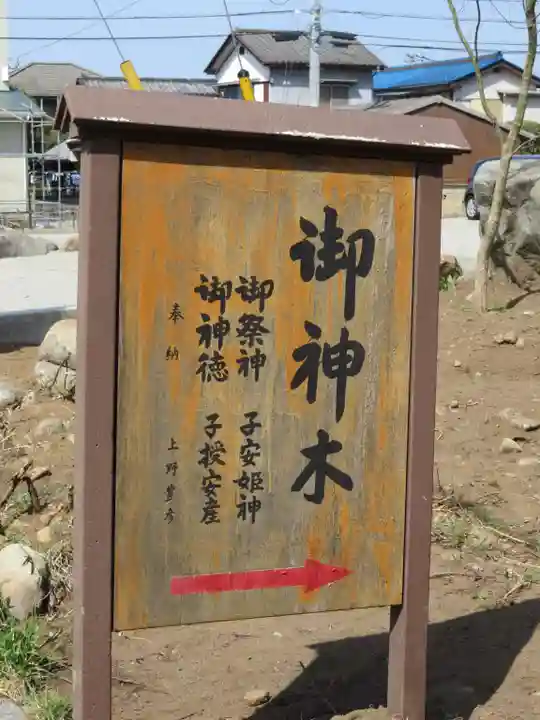 御神木
御祭神 子安姫神
御神徳 子授安産
奉納 上野豊彦